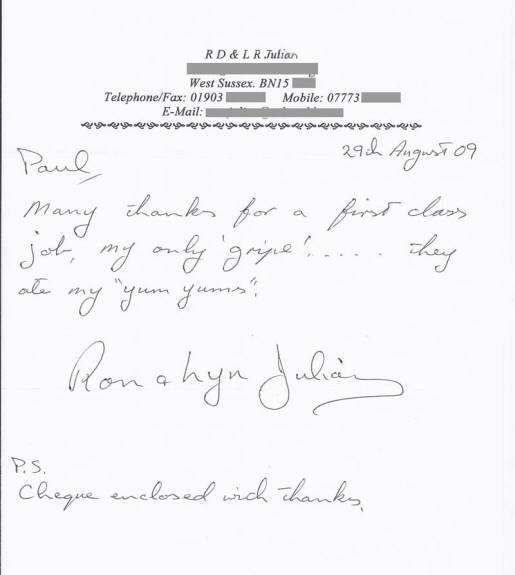 R D & L R Julian
West Sussex. BN15
Telephone/Fax: 01903 Mobile: 07773
E-Mail:
29th August 09
Paul,
Many thanks for a first class
job, my only 'gripe'!..... they
ate my "yum yums".
Ron & Lyn Julian
P.S.
Cheque enclosed with thanks.